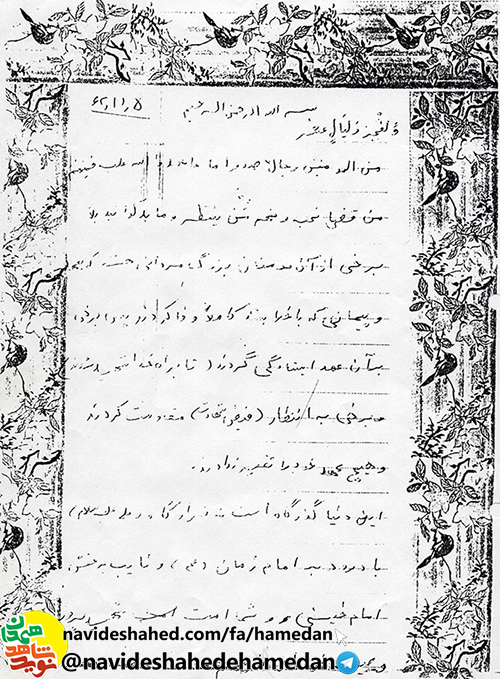 بسم الله الرحمن الرحیم
والفجر و لیالٍ عشر
من المومنین رجال صدقوا ما عاهدوا الله علیه فمنهم
من قضی نحبه و منهم من ینتظر و ما بدلوا تبدیلا
برخی از آن مومنان بزرگ مردانی هستند که
و پیمانی که با خدا بستند کاملاً وفا کردند پس برخی
بر آن عهد ایستادگی کردند ( تا براه خدا شهید شدند
و برخی به انتظار ( فیض شهادت ) مقاومت کردند
و هیچ عهد خود را تغییر ندادند.
این دنیا گذرگاه است نه قرارگاه
با درود به امام زمان (عج) و نایب برحقش
امام خمینی و امت
نوید شاهد همدان
navideshahed.com/fa/hamedan
@navideshahedehamedan